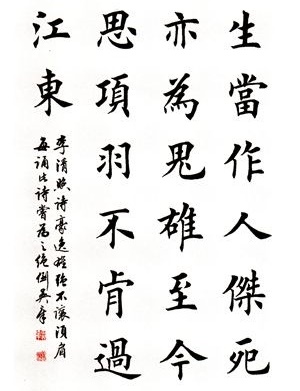 生當作人傑死
亦為鬼雄至今
思項羽不肯過
江東
李清照詩豪逸
每誦此詩常為之絕倒